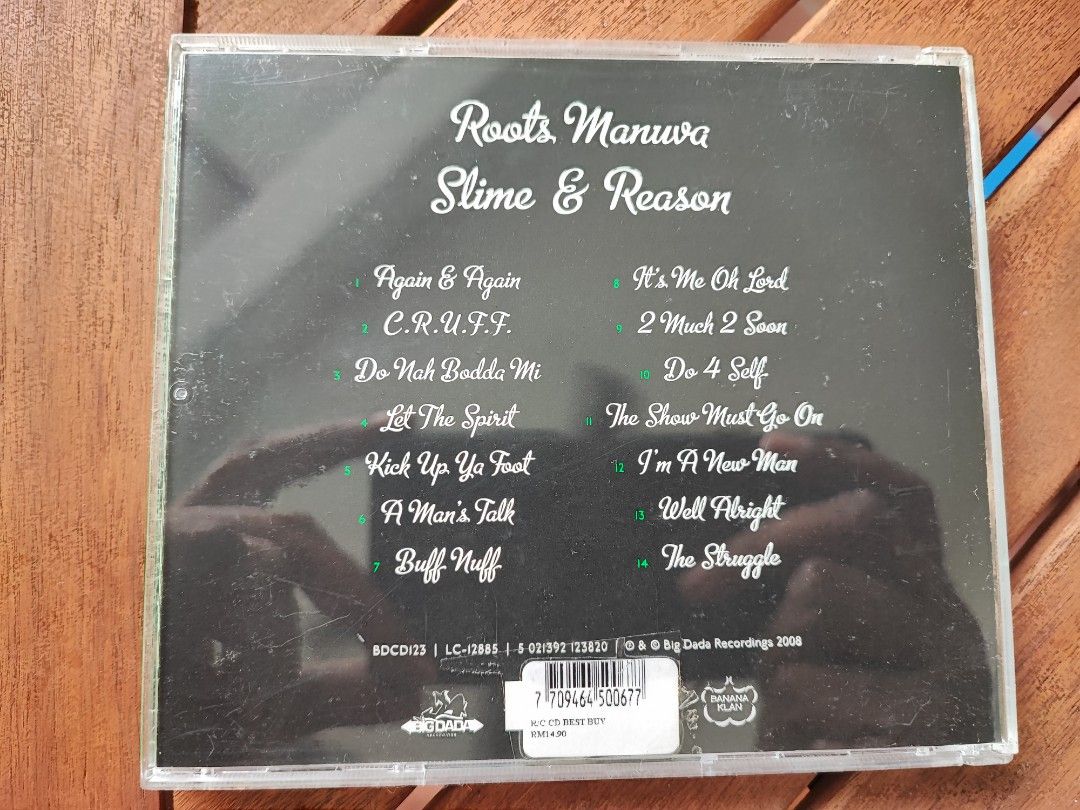 Roots Manuva
Slime & Reason
1 Again & Again
2 C.R.U.F.F.
3 Do Nah Bodda Mi
4 Let The Spirit
5 Kick Up Ya Foot
6 A Man's Talk
7 Buff Nuff
8 It's Me Oh Lord
9 2 Much 2 Soon
10 Do 4 Self
11 The Show Must Go On
12 I'm A New Man
13 Well Alright
14 The Struggle
BDCD123 | LC-12885 | 5 021392 123820 | ℗ & © Big Dada Recordings 2008
BIG DADA
7 709464 500677
R/C CD BEST BUY
RM14.90
BANANA
KLAN